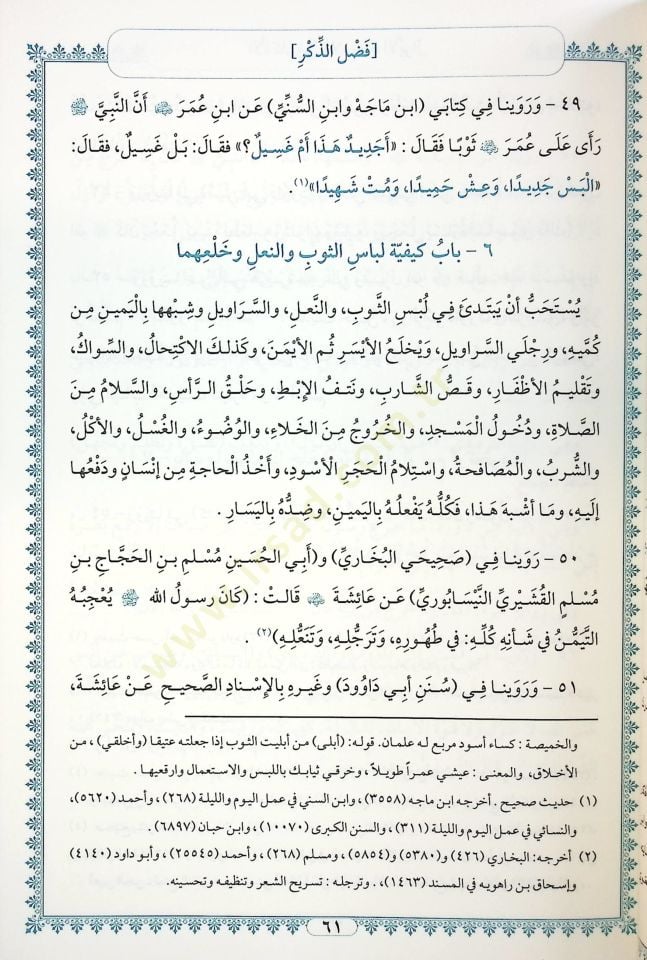 [فَضْل الذِّكْرِ]
٤٩ - وَرَوَينا فِي كِتابَي (ابن مَاجَهْ وابنِ السُّنِّيِّ) عَن ابنِ عُمَرَ ﷺ أَنَّ النَّبِيَّ ﷺ
رَأَى عَلَى عُمَرَ ﷺ ثَوْبًا فَقَالَ: «أَجَدِيدٌ هَذَا أَمْ غَسِيلٌ؟» فقَالَ: بَلْ غَسِيلٌ، فقَالَ:
«الْبَسْ جَدِيدًا، وَعِشْ حَمِيدًا، وَمُتْ شَهِيدًا»(١).
٦ - بابُ كيفيّة لباسِ الثوبِ والنعلِ وخَلْعِهما
يُسْتَحَبُّ أَنْ يَبْتَدِئَ فِي لُبْسِ الثَّوبِ، والنَّعلِ، والسَّرَاوِيلِ وشِبْهِها بِاليَمينِ مِن
كُمَّيهِ، ورِجْلَي السَّراوِيلِ، وَيْخلَعُ الأَيْسَرَ ثُم الأَيْمَنَ، وكَذلكَ الاكتِحالُ، والسِّواكُ،
وتَقْلِيمُ الأَظْفَارِ، وقَصُّ الشَّارِبِ، ونَتفُ الإِبْطِ، وحَلْقُ الرَّأْسِ، والسَّلامُ مِنَ
الصَّلاةِ، ودُخُولُ المَسْجدِ، والخُرُوجُ مِنَ الخَلاءِ، والوُضُوءُ، والغُسْلُ، والأَكْلُ،
والشُّربُ، والمُصَافحةُ، واسْتِلامُ الحَجَرِ الأَسْودِ، وأَخْذُ الحاجةِ مِن إِنسَانٍ ودَفْعُها
إلَيهِ، ومَا أشْبهَ هَذا، فكُلُّهُ يَفْعلُهُ بِاليَمينِ، وضِدُّهُ بِاليَسَارِ.
٥٠ - رَوَينا فِي (صَحِيحَي البُخَارِيِّ) و(أَبِي الحُسَينِ مُسْلمِ بنِ الحَجَّاجِ بنِ
مُسْلمٍ القُشَيْريِّ النَّيْسَابُوريِّ) عَن عَائِشةَ ﷺ قَالتْ: (كَانَ رسولُ الله ﷺ يُعْجِبُهُ
التَّيَمُّنُ فِي شَأنِهِ كُلِّهِ: فِي طُهُورِهِ، وتَرَجُّلِهِ، وتَنَعُّلِهِ)(٢).
٥١ - وَرَوَينا فِي (سُنَنِ أبِي دَاوُودَ) وغَيرِهِ بِالإِسْنادِ الصَّحيحِ عَنْ عَائِشةَ،
والخميصة: كساء أسود مربع له علمان. قوله: (أبلى) من أبليت الثوب إذا جعلته عتيقا (وأخلقي)، من
الأخلاق، والمعنى: عيشي عمراً طويلاً، وخرقي ثيابك باللبس والاستعمال وارقعيها.
(١) حديث صحيح. أخرجه ابن ماجه (٣٥٥٨)، وابن السني في عمل اليوم والليلة (٢٦٨)، وأحمد (٥٦٢٠)،
والنسائي في عمل اليوم والليلة (٣١١)، والسنن الكبرى (١٠٠٧٠)، وابن حبان (٦٨٩٧).
(٢) أخرجه: البخاري (٤٢٦) و(٥٣٨٠) و(٥٨٥٤)، ومسلم (٢٦٨)، وأحمد (٢٥٥٤٥)، وأبو داود (٤١٤٠)
وإسحاق بن راهويه في المسند (١٤٦٣)،. وترجله: تسريح الشعر وتنظيفه وتحسينه.
٦١